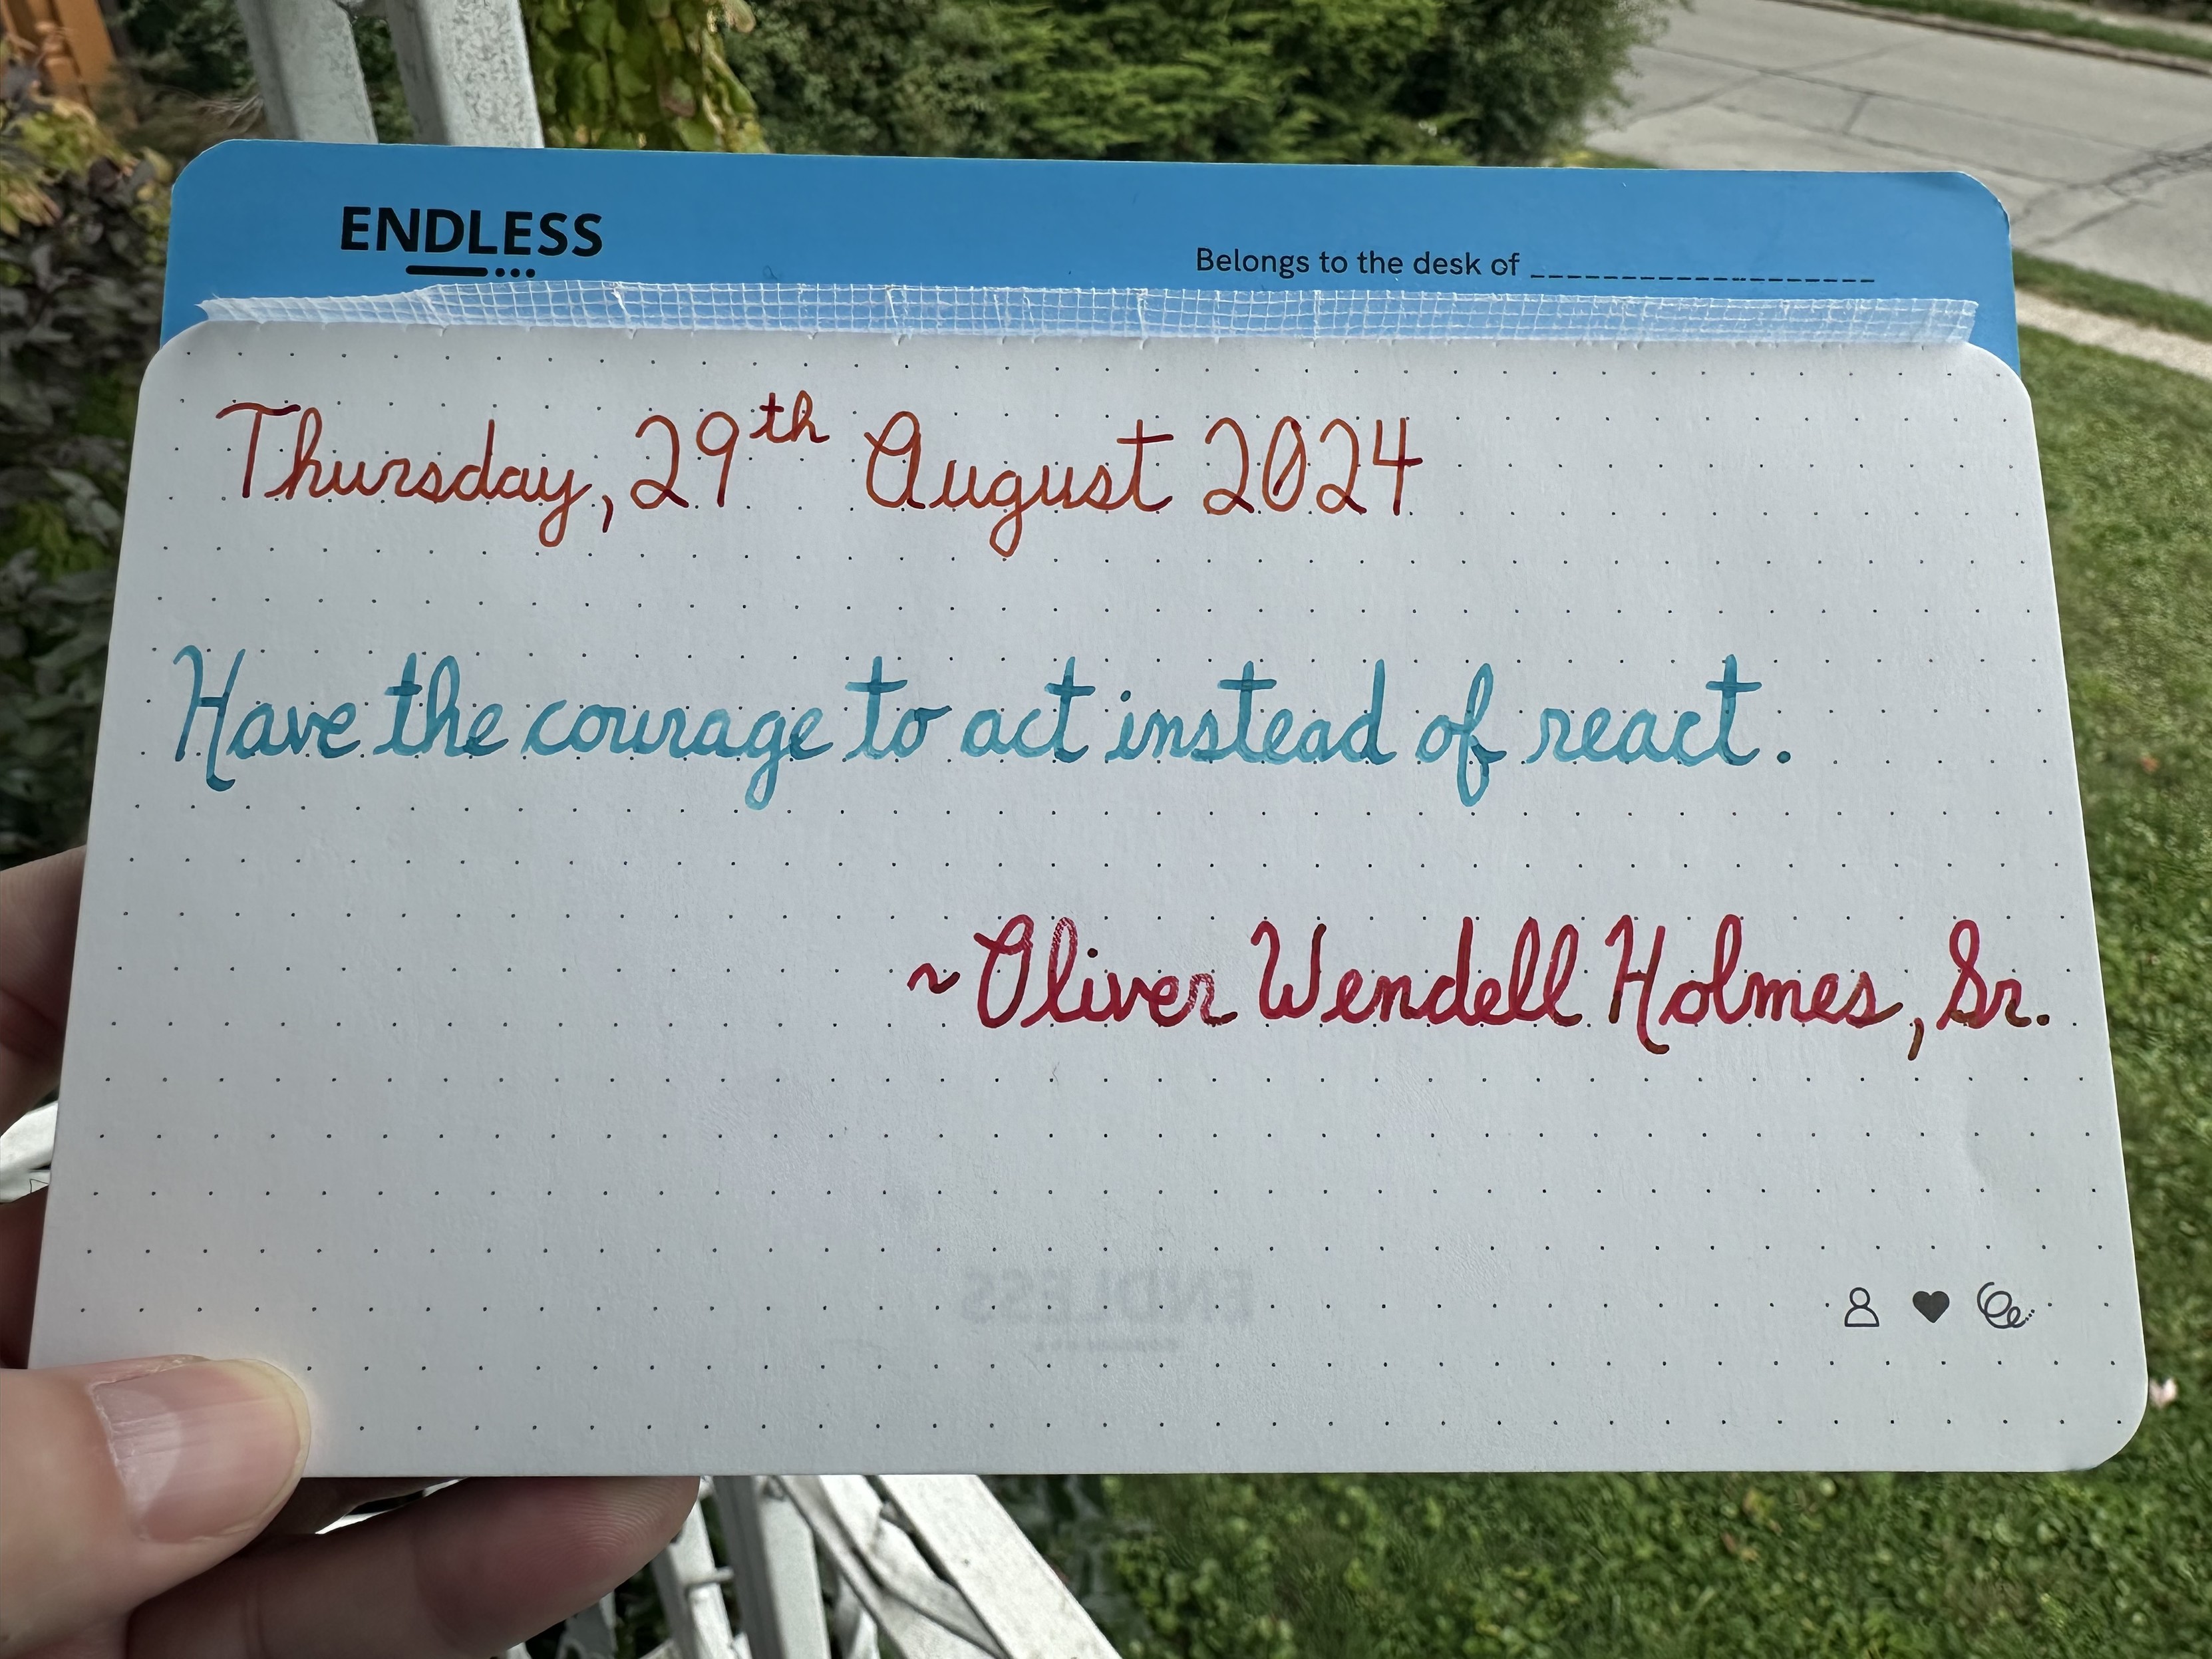 ENDLESS
Belongs to the desk of
Thursday, 29th August 2024
Have the courage to act instead of react.
~Oliver Wendell Holmes, Sr.
ENDLESS